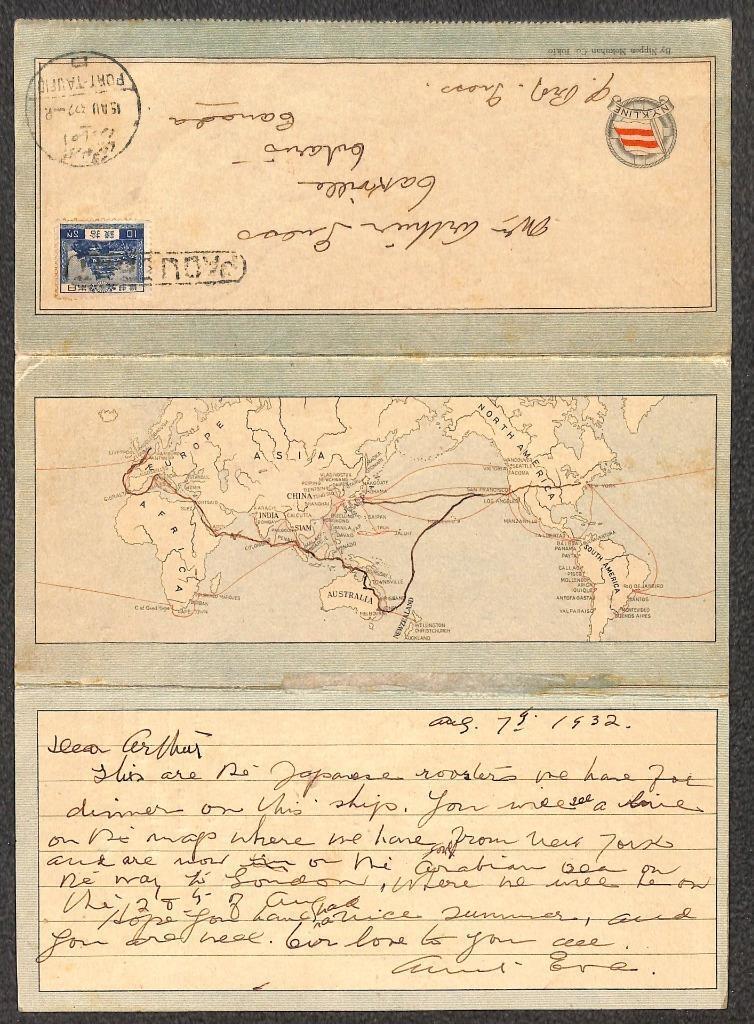 By Nippon Meishokan Co. Tokio
NYK LINE
Mr Arthur
Oakville
Ontario
Canada
PORT-TAUFIQ
15 AU 32
10 SN
拾銭
PAQU
EUROPE
ASIA
AFRICA
CHINA
INDIA
SIAM
AUSTRALIA
NEW ZEALAND
NORTH AMERICA
SOUTH AMERICA
LIVERPOOL
KARACHI
BOMBAY
CALCUTTA
COLOMBO
PORT SAID
SAIPAN
MANILA
DAVAO
TRUK
JALUIT
TOWNSVILLE
BRISBANE
WELLINGTON
CHRISTCHURCH
AUCKLAND
VANCOUVER
VICTORIA
SEATTLE
TACOMA
SAN FRANCISCO
LOS ANGELES
MANZANILLO
LA LIBERTAD
BALBOA
PANAMA
CALLAO
PISCO
MOLLENDO
ARICA
IQUIQUE
ANTOFAGASTA
VALPARAISO
RIO DE JANEIRO
SANTOS
MONTEVIDEO
BUENOS AIRES
C. of Good Hope
Aug. 7th 1932.
Dear Arthur
This are the Japanese roosters we have for
dinner on this ship. You will see a line
on the map where we have come from New York
and are now on the Arabian Sea on
the way to London, where we will be on
the 28th of Aug
Hope you have had a nice summer, and
you are well. Our love to you all.
Aunt Eva.